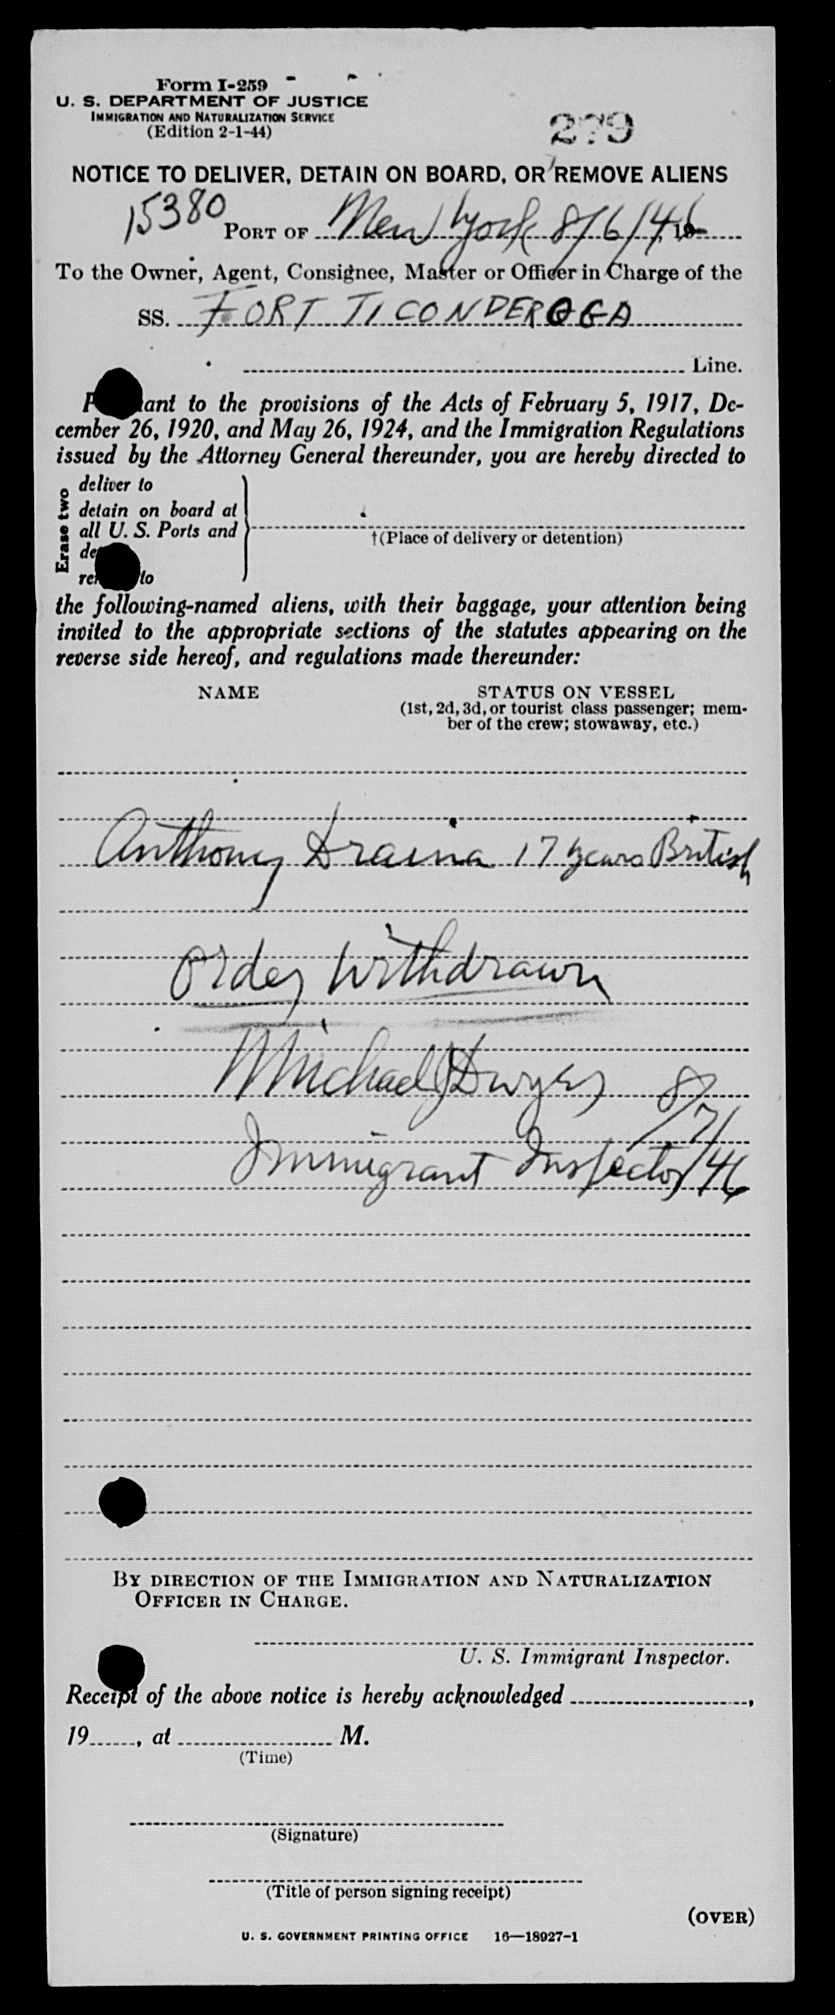 Form I-259
U. S. DEPARTMENT OF JUSTICE
IMMIGRATION AND NATURALIZATION SERVICE
(Edition 2-1-44)
NOTICE TO DELIVER, DETAIN ON BOARD, OR REMOVE ALIENS
15380
PORT OF New York 8/6/46
To the Owner, Agent, Consignee, Master or Officer in Charge of the
SS. FORT TICONDEROGA
Line.
to the provisions of the Acts of February 5, 1917, De-
cember 26, 1920, and May 26, 1924, and the Immigration Regulations
issued by the Attorney General thereunder, you are hereby directed to
Erase two
deliver to
detain on board at
all U. S. Ports and
to
†(Place of delivery or detention)
the following-named aliens, with their baggage, your attention being
invited to the appropriate sections of the statutes appearing on the
reverse side hereof, and regulations made thereunder:
NAME STATUS ON VESSEL
(1st, 2d, 3d, or tourist class passenger; mem-
ber of the crew; stowaway, etc.)
Anthony Draina 17 years British
Order Withdrawn
Michael J Dwyer 8/7/46
Immigrant Inspector
BY DIRECTION OF THE IMMIGRATION AND NATURALIZATION
OFFICER IN CHARGE.
U. S. Immigrant Inspector.
Receipt of the above notice is hereby acknowledged ,
19 , at M.
(Time)
(Signature)
(Title of person signing receipt)
(OVER)
U. S. GOVERNMENT PRINTING OFFICE 16—18927-1